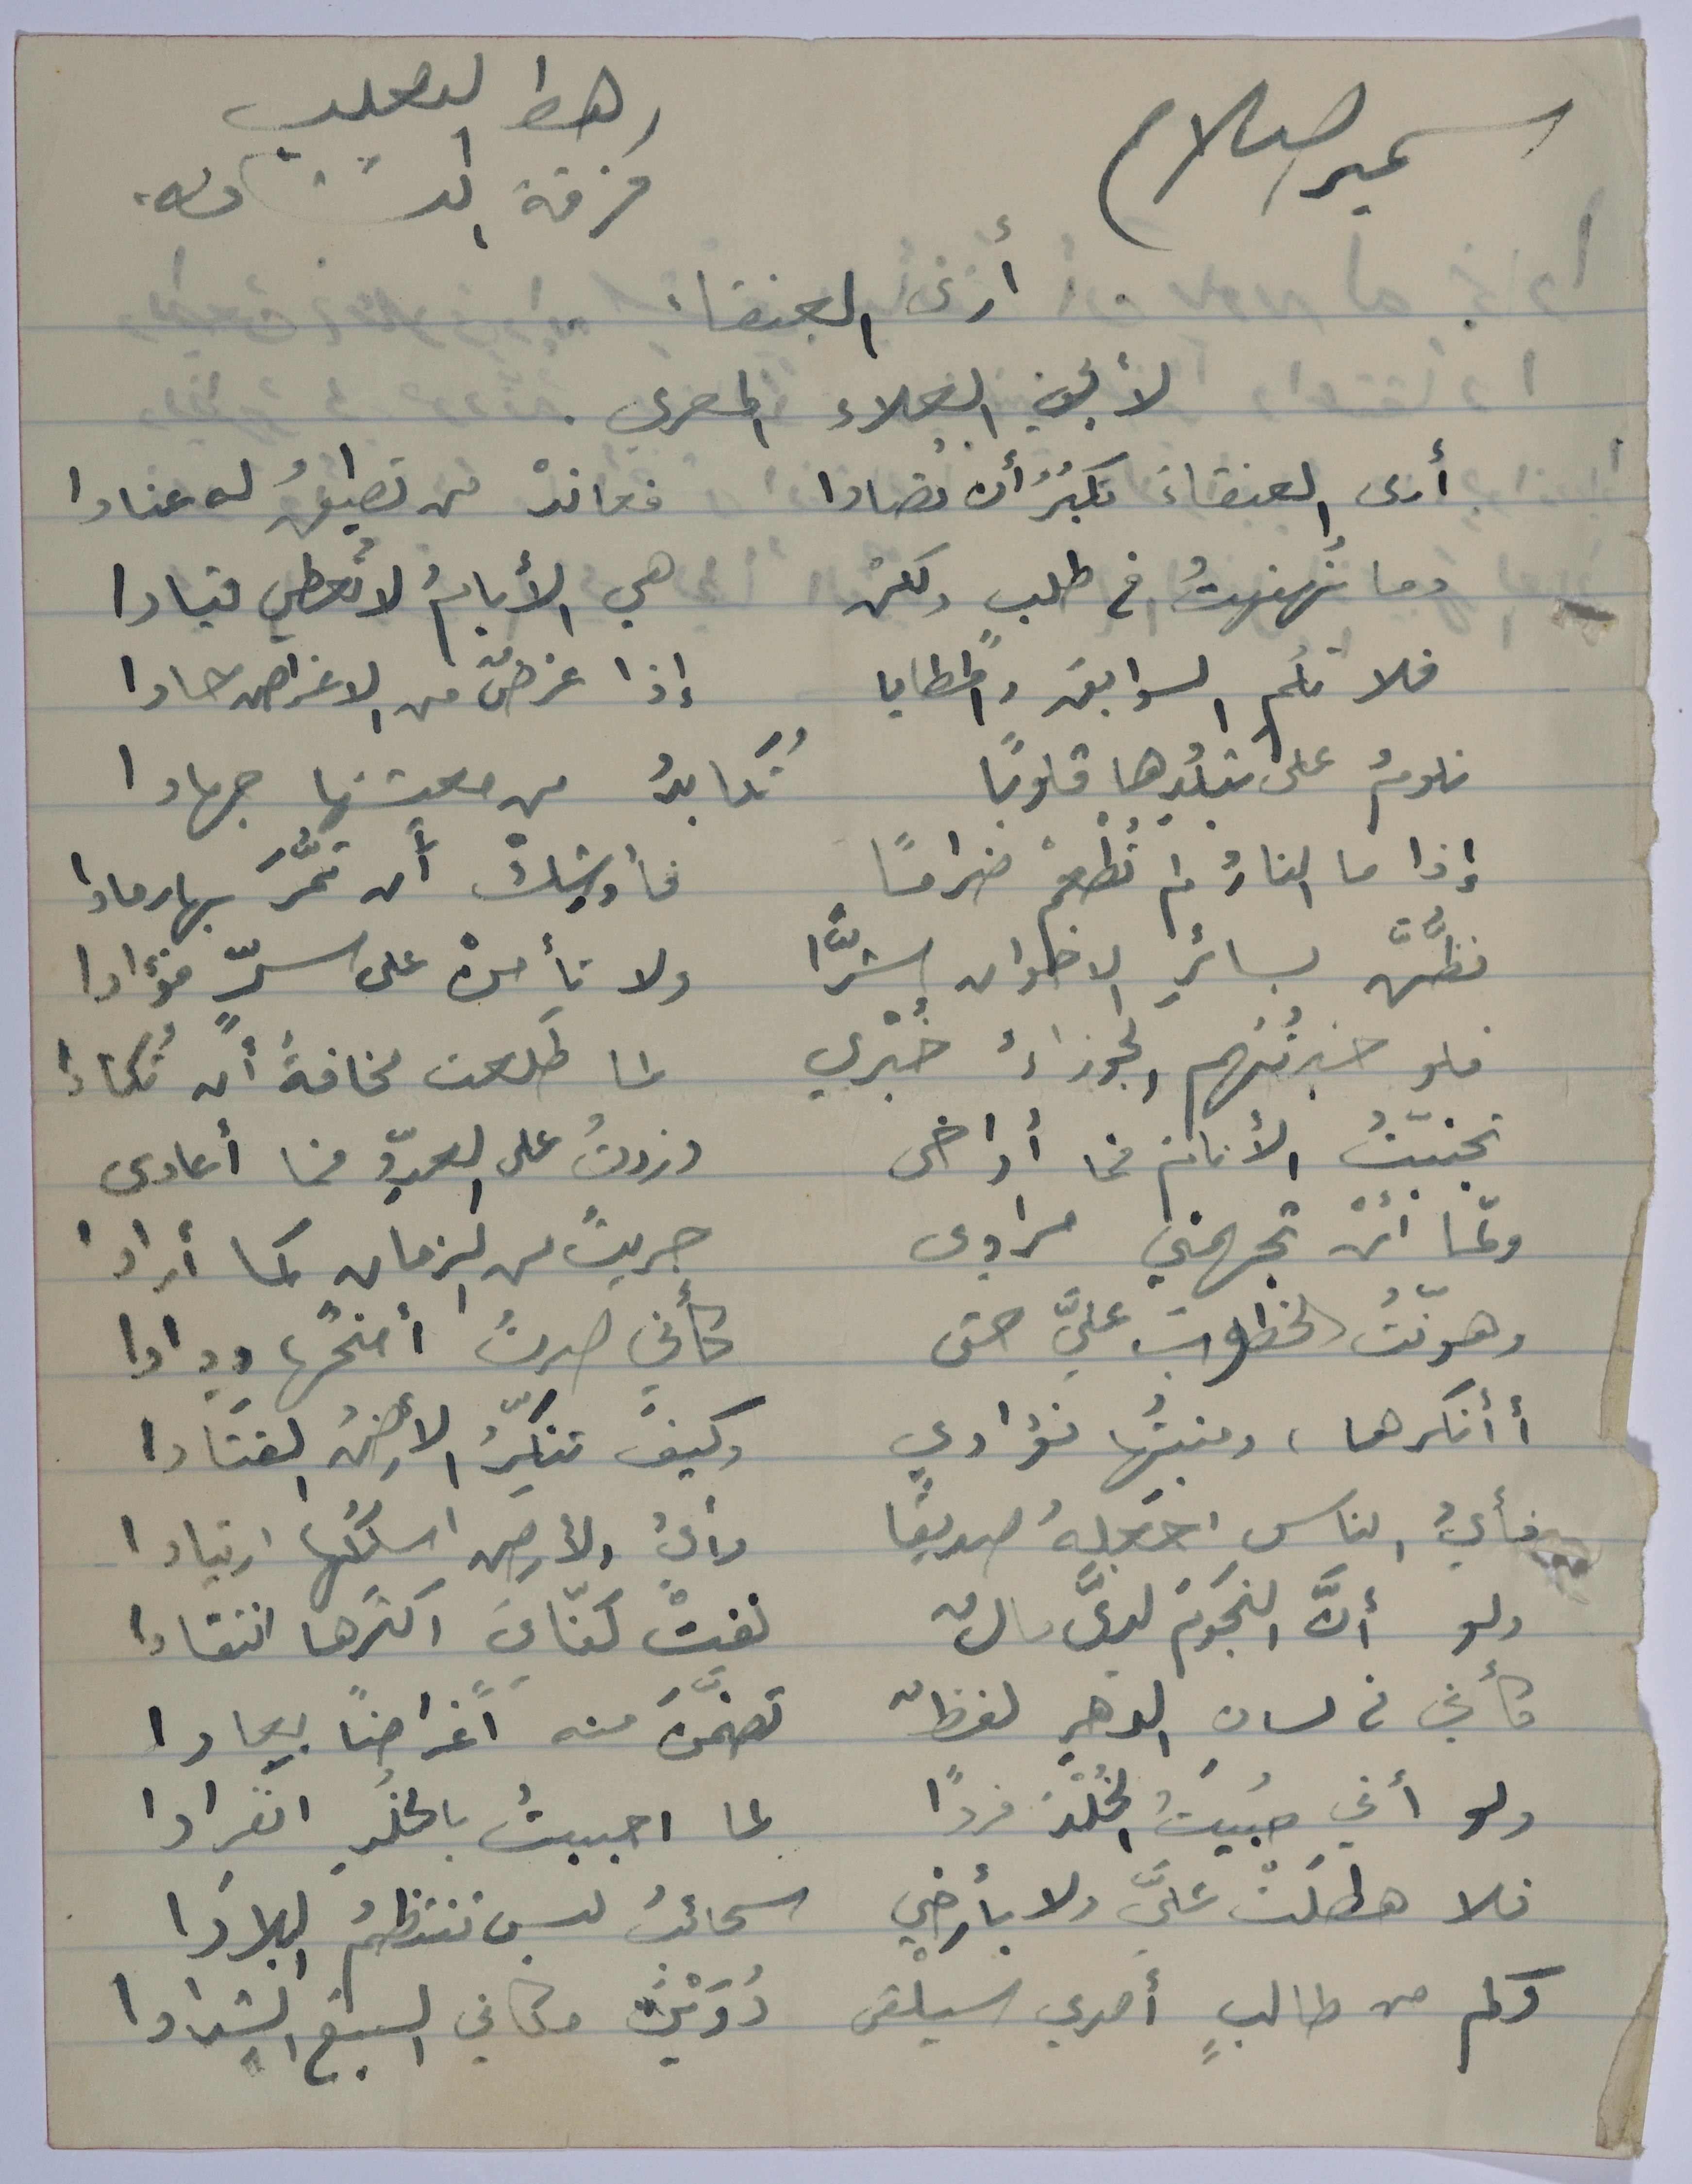 سمير سلام
رهط الثعلب
فرقة
أرى العنقاء
لأبي العلاء المعري
أرى العنقاءَ تكبُرُ أن تُصادا فعاندْ من تطيقُ له عنادا
وما نَهنهتُ في طلبٍ ولكنْ هي الأيامُ لا تُعطي قيادا
فلا تلُمِ السوابقَ والمطايا إذا غرضٌ من الاغراض حادا
تلومُ على تبلُّدِها قلوبًا تُكابدُ من معيشتها جهادا
إذا ما النارُ لم تُطْعَمْ ضرامًا فأوشِكْ أن تمُرَّ بها رمادا
تظنَّ بسائرِ الاخوان شرًّا ولا تأمنْ على سرٍّ فؤادا
فلو خبرتْهُم الجوزاءُ خُبْري لما طَلعت مخافةَ أن تُكادا
تجنبّتُ الأنامَ فما أواخى وزدتُ على العدوِّ فما أعادى
ولمّا أنْ تجهمني مرادى جريتُ من الزمان كما أرادا
وهوّنتُ الخطوبَ عليَّ حتى كأني صرتُ أمنحُها ودادا
أأنكرها، ومنبتُها فؤادي وكيفَ تنكِّرُ الأرضُ القتادا
فأيُّ الناس اجعلهُ صديقًا وأيُّ الأرضِ اسلكُها ارتيادا
ولو أنَّ النجومَ لديَّ مالٌ نفتْ كفّايَ اكثرها انتقادا
كأني في لسانِ الدهرِ لفظٌ تضمَّنَ منه أغراضًا بِعادا
ولو أني حُبيتُ الخُلْدَ فردًا لما احببتُ بالخلدِ انفرادا
فلا هطلَتْ عليَّ ولا بأرضي سحائبُ ليس تنتظمُ البلادَا
وكم من طالبٍ أمدي سيلْقى دُوَيْنَ مكاني السبعَ الشِّدادا